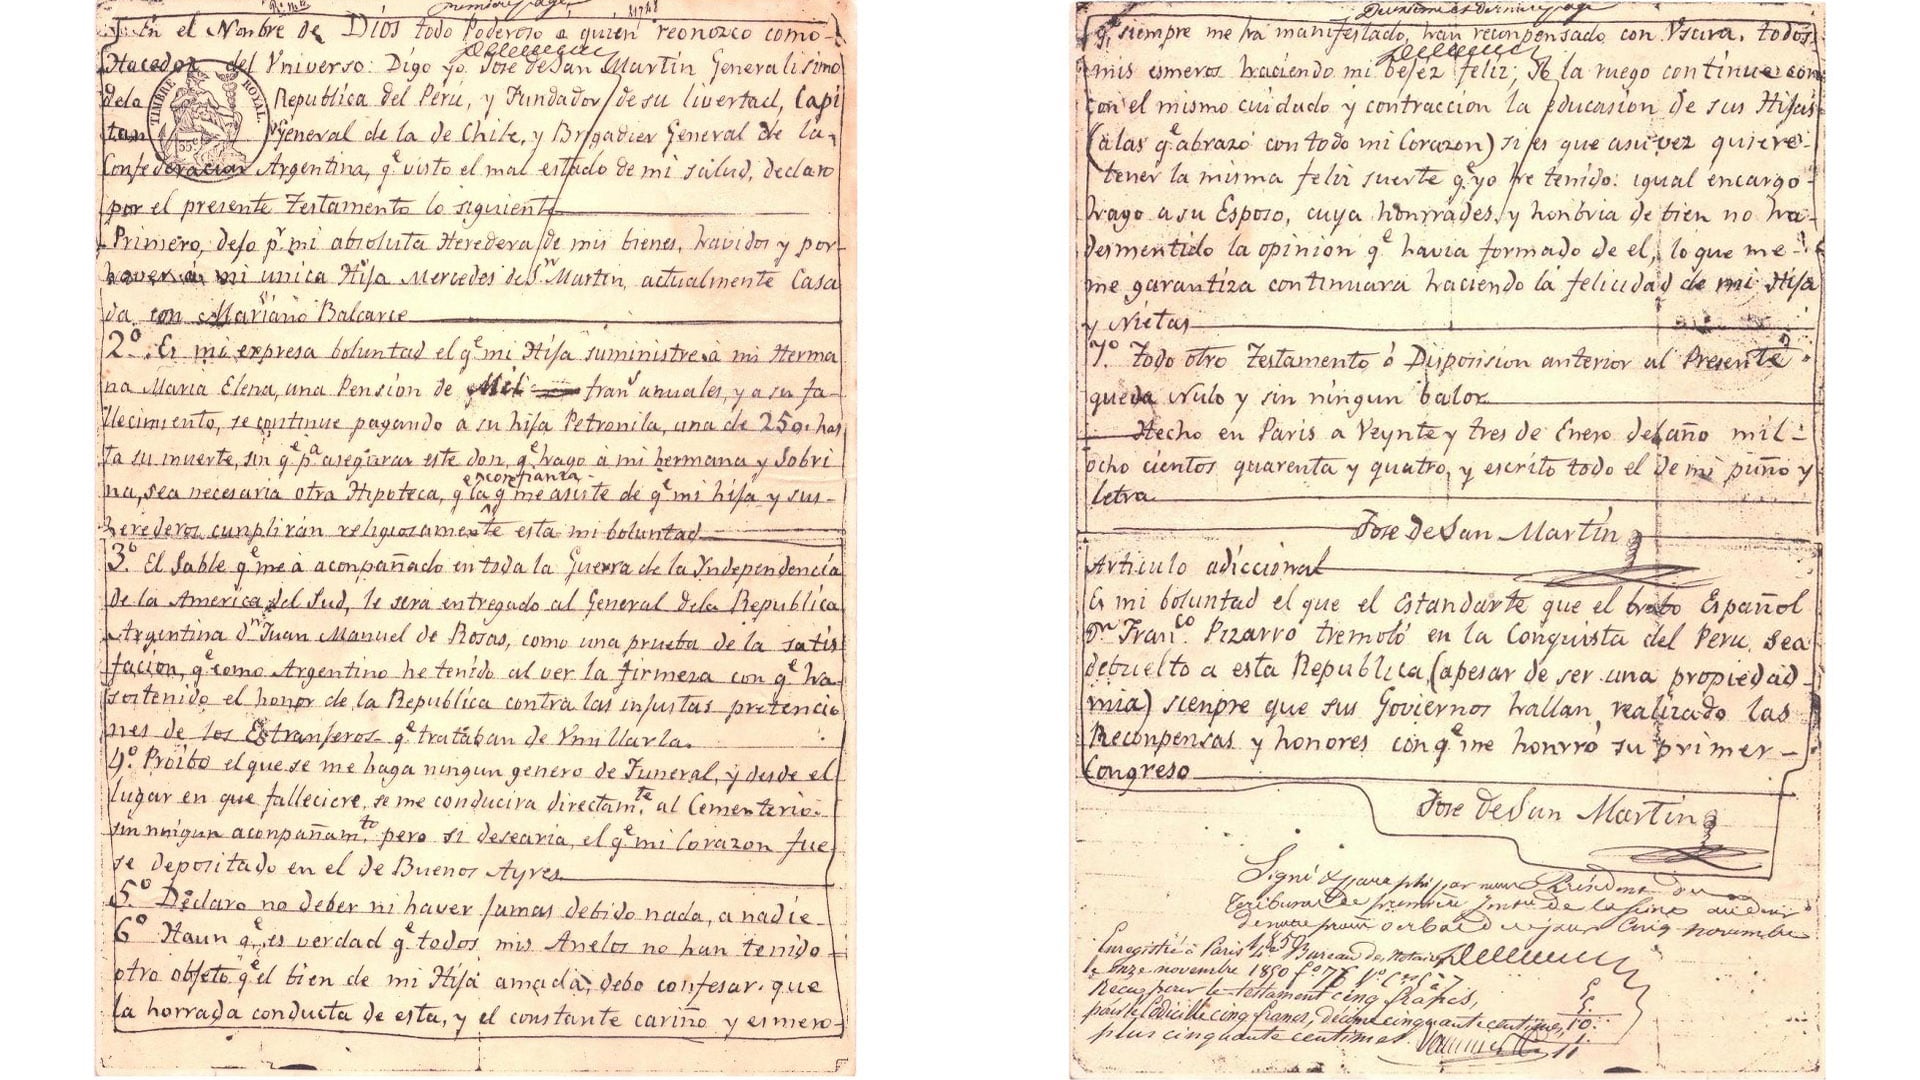 premiere page
En el Nonbre de Dios todo Poderoso a quien reonozco como
Hacedor del Vniverso: Digo yo Jose de San Martin Generalisimo
dela Republica del Peru, y Fundador de su livertad, Capi
tan General de la de Chile, y Brigadier General de la
Confederacion Argentina, qe visto el mal estado de mi salud, declaro
por el presente Testamento lo siguiente
Primero, dejo pr mi absoluta Heredera de mis bienes, havidos y por
haver á mi unica Hija Mercedes de Sn Martin, actualmente Casa
da con Mariano Balcarce
2º. Es mi expresa boluntad el qe mi Hija suministre á mi Herma
na Maria Elena, una Pensión de Mil franˢ anuales, y a su fa-
llecimiento, se continue pagando a su hija Petronila, una de 250, has
ta su muerte, sin qe pa asegurar este don, qe hago à mi hermana y Sobri
confianza
na, sea necesaria otra Hipoteca, q la q me asiste de qe mi hija y sus-
herederos cunplirán religiosamente esta mi boluntad
3º. El Sable qe me à aconpañado en toda la Guerra de la Yndependencia
de la America del Sud, le sera entregado al General dela Republica
Argentina dn Juan Manuel de Rosas, como una prueba de la satis
facion, qe como Argentino he tenido al ver la firmeza con qe ha
sostenido el honor de la Republica contra las injustas pretencio
nes de los Estranjeros qe trataban de Vmillarla.
4º. Proibo el que se me haga ningun genero de Funeral, y desde el
lugar en que falleciere, se me conducira directamte al Cementerio
sin ningun aconpañamto pero si desearia, el qe mi Corazon fue
se depositado en el de Buenos Ayres
5º Declaro no deber ni haver jamas debido nada, a nadie
6º Haun qe, es verdad qe todos mis Anelos no han tenido
otro objeto qe el bien de mi Hija amada, debo confesar, que
la horrada conducta de esta, y el constante cariño y esmero
TIMBRE ROYAL
Deuxieme et derniere page
qe siempre me ha manifestado, han reconpensado con Vsura, todos
mis esmeros haciendo mi bejez feliz; Yo la ruego continue con
con el mismo cuidado y contraccion la educasion de sus Hijas
(a las qe abrazo con todo mi Corazon) si es que asu vez quiere
tener la misma feliz suerte qe yo he tenido: igual encargo
hago a su Esposo, cuya honrrades, y honbria de bien no ha
desmentido la opinion qe havia formado de el, lo que me
me garantiza continuara haciendo la felicidad de mi Hija
y Nietas
7º Todo otro Testamento ó Disposision anterior al Presente
queda Nulo y sin ningun balor
Hecho en Paris a Veynte y tres de Enero del año mil
ocho cientos quarenta y quatro, y escrito todo el de mi puño y
letra
Jose de San Martin
Articulo adiccional
Es mi boluntad el que el Estandarte que el brabo Español
Dn Franco Pizarro tremoló en la Conquista del Peru sea
debuelto a esta Republica (apesar de ser una propiedad
mia) sienpre que sus Goviernos hallan realizado las
Reconpensas y honores con qe me honrró su primer
Congreso
Jose de San Martin
Signé & paraphé par nous Président du
Tribunal de première Instce de la Seine
cinq novembre
1850
Enregistré à Paris 4e Bureau des Notaires
le onze novembre 1850
Reçu pour le testament cinq francs,
pour le Codicille cinq francs, décime cinquante centimes,
plus cinquante centimes
5.
5.
10.
11